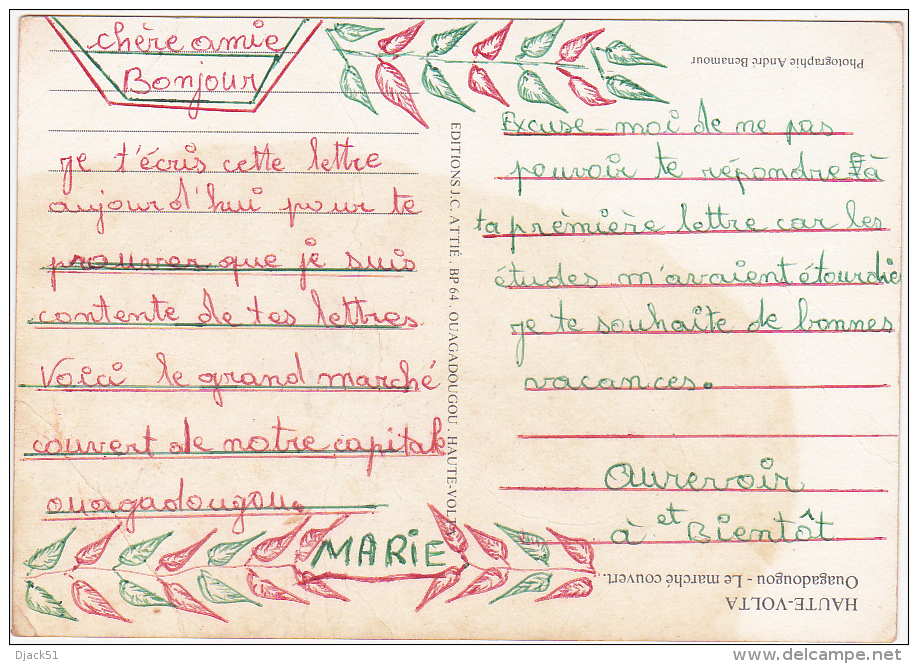 chère amie
Bonjour
je t'écris cette lettre
aujourd'hui pour te
prouver que je suis
contente de tes lettres
Voici le grand marché
couvert de notre capitale
ouagadougou.
MARIE
Excuse-moi de ne pas
pouvoir te répondre à
ta prèmière lettre car les
études m'avaient étourdie
je te souhaite de bonnes
vacances.
Aurevoir
et
à Bientôt
EDITIONS J.C. ATTIÉ . BP 64 . OUAGADOUGOU . HAUTE-VOLTA
Photographie André Benamour
HAUTE-VOLTA
Ouagadougou - Le marché couvert..
Djack51
www.delcampe.net